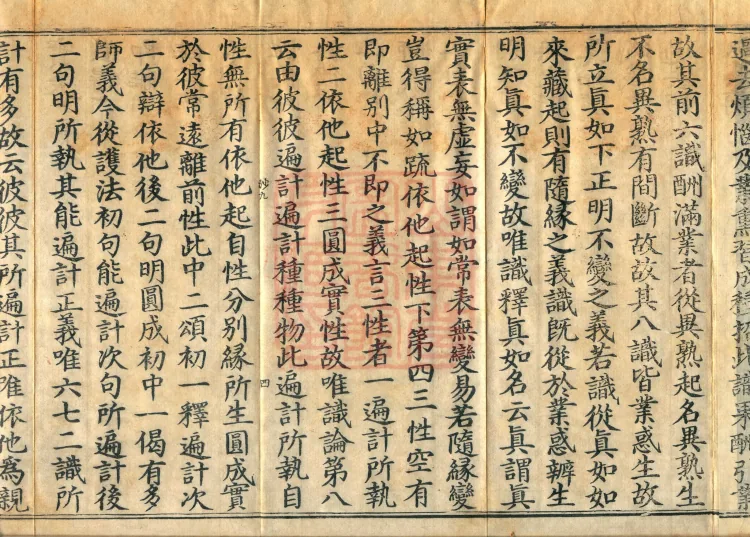 過去煩惱及業熏習成招此識果酬引業
故其前六識酬滿業者從異熟起名異熟生
不名異熟有間斷故故其八識皆業惑生故
所立眞如下正明不變之義若識從眞如如
來藏起則有隨緣之義識既從於業惑辦生
明知眞如不變故唯識釋眞如名云眞謂眞
實表無虛妄如謂如常表無變易若隨緣變
豈得稱如疏依他起性下第四三性空有
即離別中不即之義言三性者一遍計所執
性二依他起性三圓成實性故唯識論第八
云由彼彼遍計遍計種種物此遍計所執自
鈔九 四
性無所有依他起自性分別緣所生圓成實
於彼常遠離前性此中二頌初一釋遍計次
二句辯依他後二句明圓成初中一偈有多
師義今從護法初句能遍計次句所遍計後
二句明所執其能遍計正義唯六七二識所
計有多故云彼彼其所遍計正唯依他為親